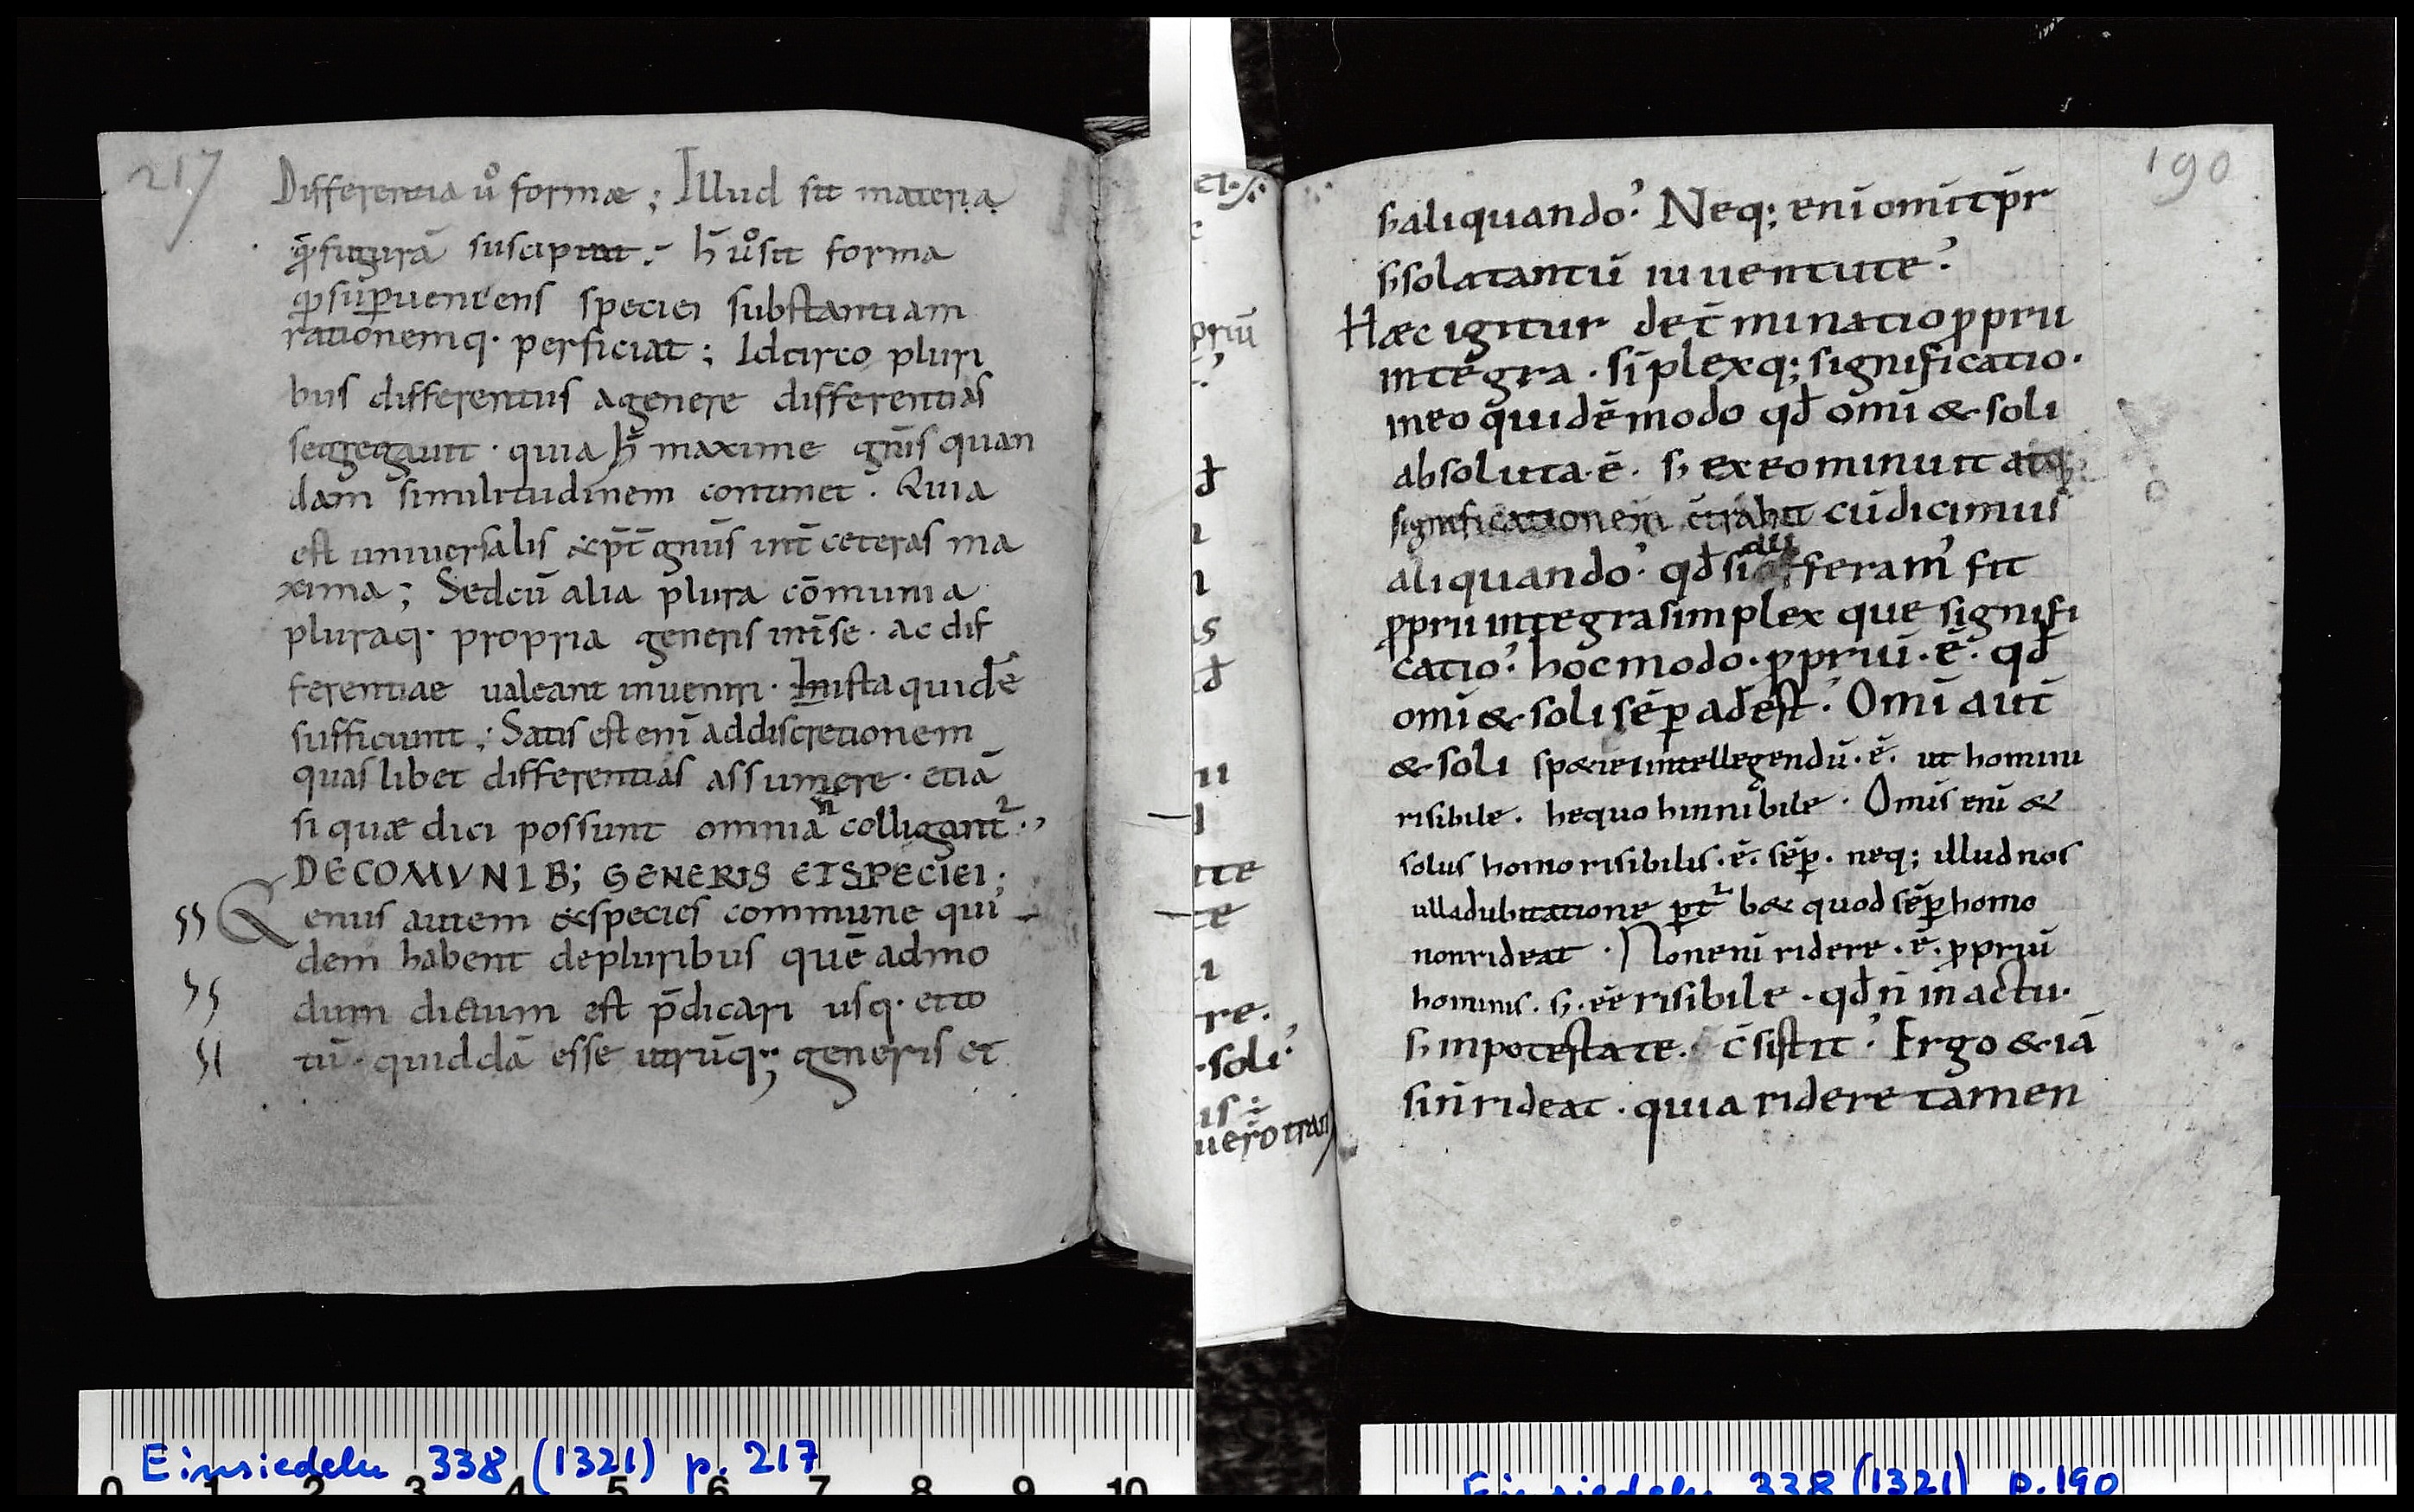 217
Differentia uº formae ; Illud sit materia
q̄ figurā suscipiat . h̄ uºsit forma
q̄ sup̄ueniens speciei substantiam
rationemq· perficiat ; Idcirco pluri
bus differentiis agenere differentias
segregauit · quia h̄ maxime gn̄is quan
dam similitudinem continet . Quia
est uniuersalis &p̄t gn̄us int̄ ceteras ma
xima ; Sedcū alia plura cōmunia
pluraq· propria generis int̄se · ac dif
ferentiae ualeant inueniri · Hista quidē
sufficiunt ; Satis est enī addiscretionem
quas libet differentias assumere · etiā
si quae dici possunt omnia n̄ colligant² .,
DECOMVNIB; GENERIS ETSPECIEI ;
Genus autem &species commune qui
dem habent depluribus quē admo
dum dictum est p̄dicari usq· etto
tū · quiddā esse utrūq; generis et
Einsiedeln 338 (1321) p. 217
0 1 2 3 4 5 6 7 8 9 10
ei·
priū
ꝗd
ı
s
ꝗd
ii
l
tte
e
re.
·soli’
is :
uero tran
190
s; aliquando.’ Neq; enī omī tp̄r
s; sola tantū iuuentute.’
Haec igitur det̄minatio ꝓprii
integra · sīplexq; significatio ·
meo quidē modo qđ omī & soli
absoluta·ē· s; ex eo minuit atq;
significationem c̄trahit cū dicimus
aliquando.’ qđ si auferam’ fit
ꝓprii integra simplex que signifi
catio.’ hoc modo · ꝓpriū · ē· qđ
omī & soli sēp adest.’ Omī aut̄
& soli sp&iei intellegendū·ē· ut homini
risibile . & equo hinnibile · Omīs enī &
solus homo risibilis·ē· sēp· neq; illud nos
ulla dubitatione p̄t² b& quod sēp homo
non rideat · Non enī ridere · ē· ꝓpriū
hominis . s; · eē risibile · qđ n̄ in actu·
s; in potestate. c̄sistit.’ Ergo & iā
si n̄ rideat · quia ridere tamen
Einsiedeln 338 (1321) p. 190